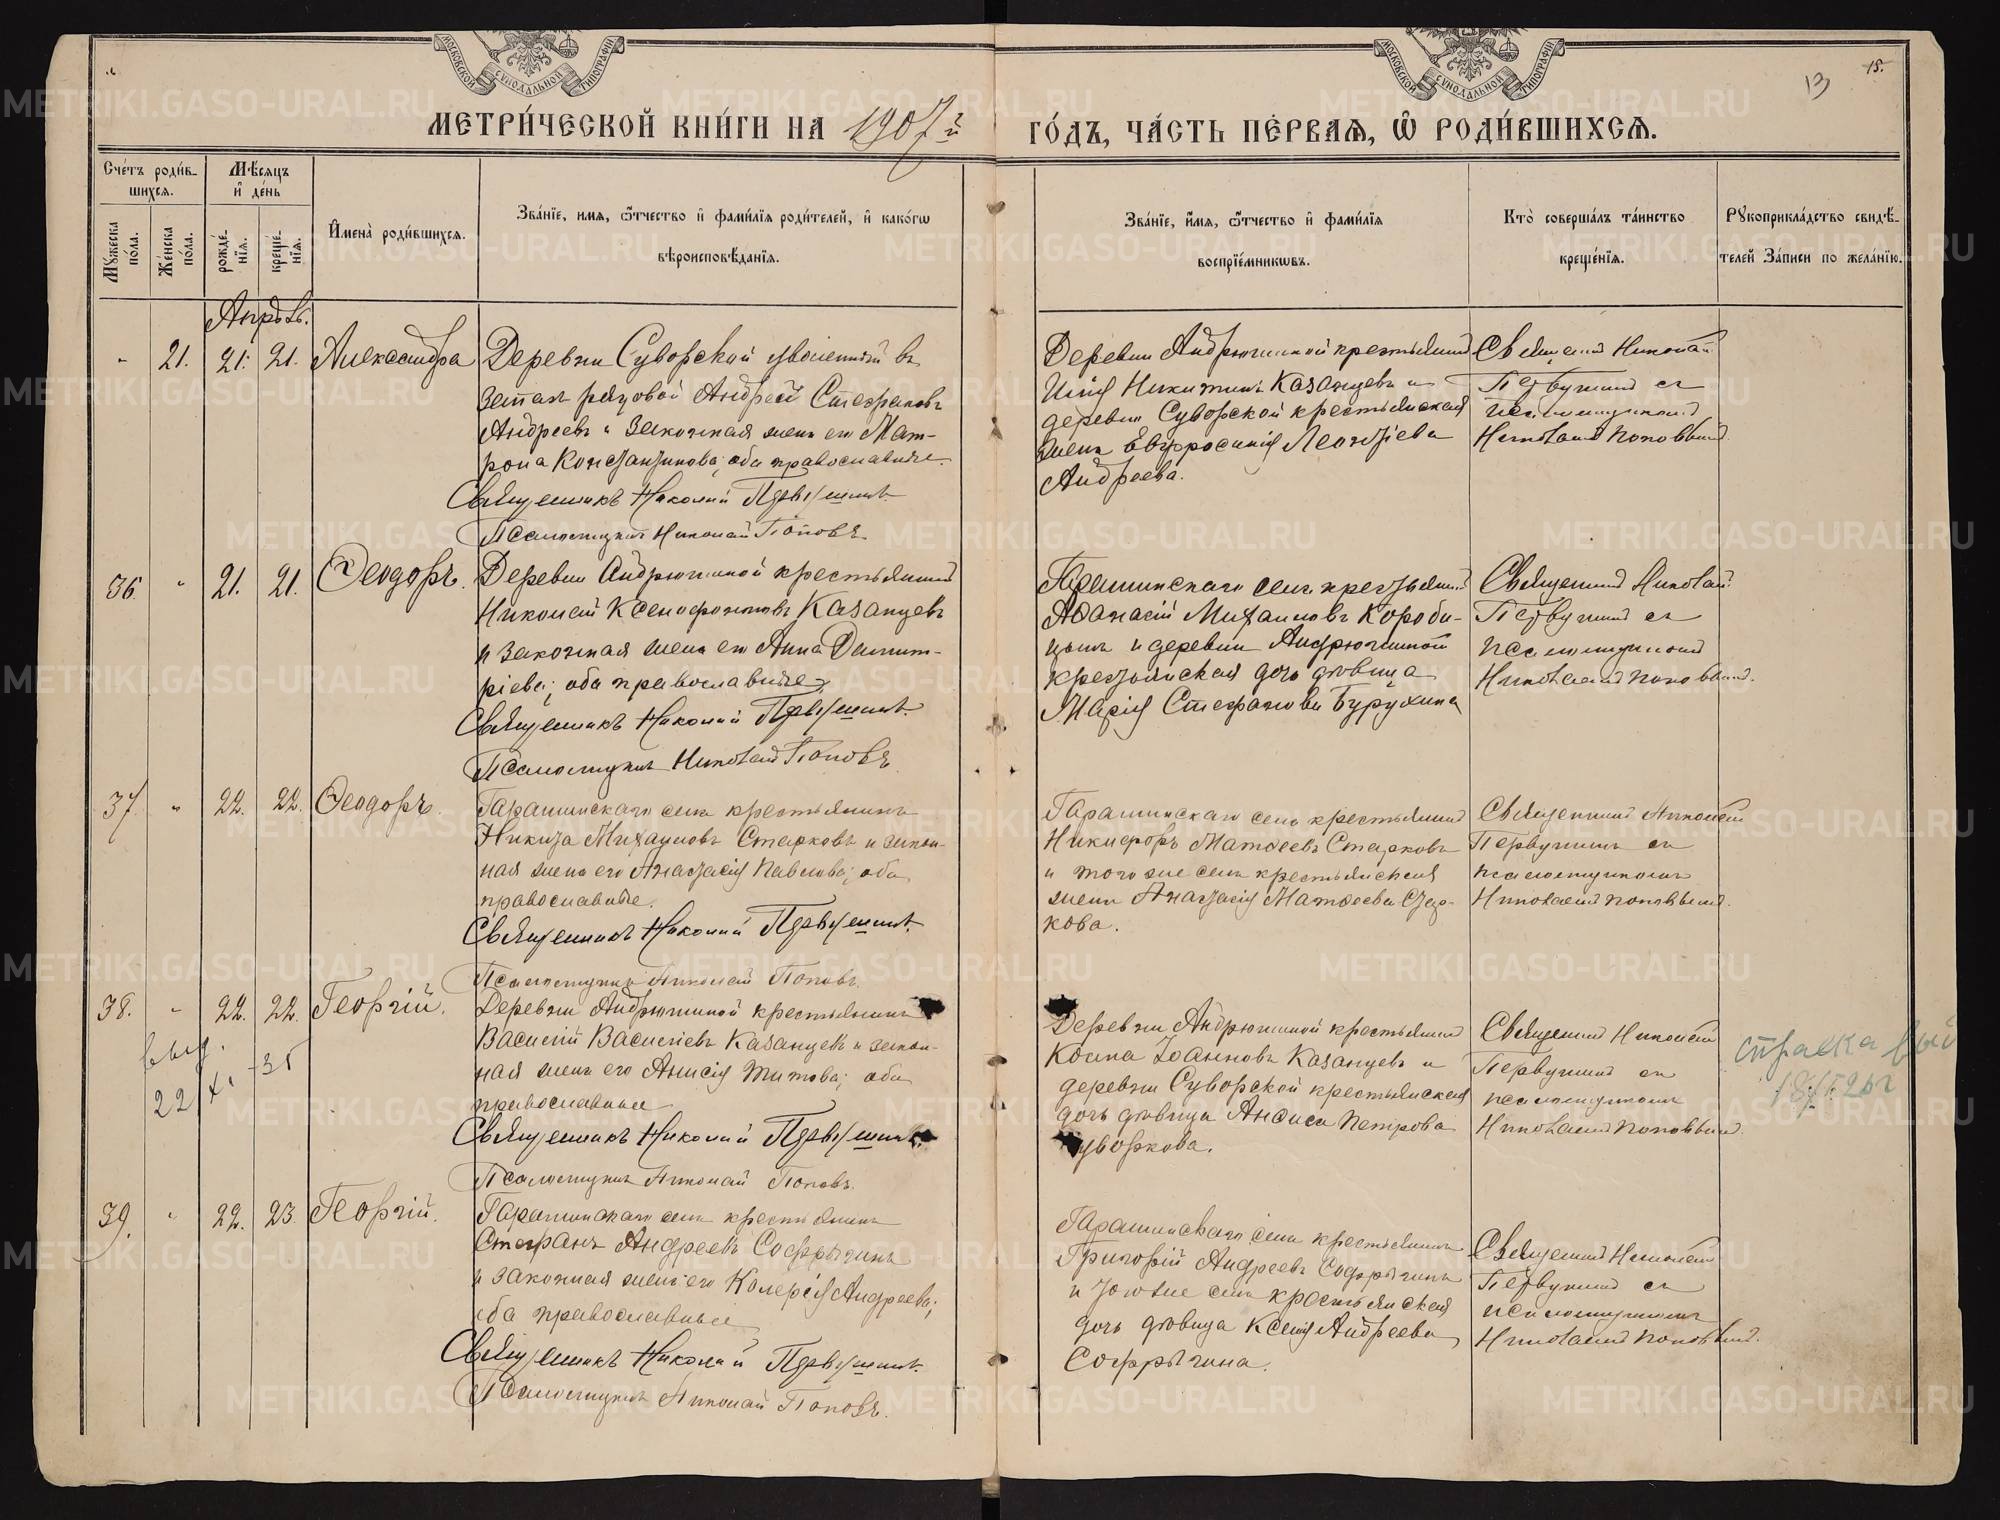 МОСКОВСКОЙ СѴНОДАЛЬНОЙ ТИПОГРАФІИ
МОСКОВСКОЙ СѴНОДАЛЬНОЙ ТИПОГРАФІИ
13
15.
МЕТРИ́ЧЕСКОЙ КНИ́ГИ НА 1907й
ГО́ДЪ, ЧА́СТЬ ПЕ́РВАѦ, Ѡ҆ РОДИ́ВШИХСѦ.
Сче́тъ роди́в-
шихсѧ.
Мѣ́сѧцъ
и҆ де́нь
Мꙋ́жеска
по́ла.
Же́нска
по́ла.
рожде́-
нїѧ.
креще́-
нїѧ.
И҆мена̀ роди́вшихсѧ.
Зва́нїе, имѧ, ѻ҆́тчество и҆ фами́лїѧ роди́телей, и҆ како́гѡ
вѣроисповѣ́данїѧ.
Зва́нїе, и҆́мѧ, ѻ҆́тчество и҆ фами́лїѧ
воспрїе́мникѡвъ.
Кто̀ соверша́лъ та́инство
креще́нїѧ.
Рꙋкоприкла́дство свидѣ́-
телей За́писи по жела́нїю.
Апрѣль.
21. 21. 21. Александра
Деревни Суворской уволенный въ
запас рядовой Андрей Стефановъ
Андреевъ и законная жена его Мат-
рона Константинова; оба православные.
Священникъ Николай Первушинъ.
Псаломщикъ Николай Поповъ.
Деревни Андрюшиной крестьянинъ
Илія Никитинъ Казанцевъ и
деревни Суворской крестьянская
жена Евфросинія Леонтіева
Андреева.
Священникъ Николай
Первушинъ съ
псаломщикомъ
Николаемъ Поповымъ.
36. 21. 21. Ѳеодоръ.
Деревни Андрюшиной крестьянинъ
Николай Ксенофонтовъ Казанцевъ
и законная жена его Анна Димит-
ріева; оба православные.
Священникъ Николай Первушинъ.
Псаломщикъ Николай Поповъ.
Гарашинскаго села крестьянинъ
Аѳанасій Михаиловъ Коробе-
деревни Андрюшиной
крестьянская дочь дѣвица
Марія Стефанова Бурухина
Священникъ Николай
Первушинъ съ
псаломщикомъ
Николаемъ Поповымъ.
37. 22. 22. Ѳеодоръ.
Гарашинскаго села крестьянинъ
Никита Михаиловъ Старковъ и закон-
ная жена его Анастасія Павлова; оба
православные.
Священникъ Николай Первушинъ.
Псаломщикъ Николай Поповъ.
Гарашинскаго села крестьянинъ
Никифоръ Матѳеевъ Старковъ
и того же села крестьянская
жена Анастасія Матѳеева Стар-
кова.
Священникъ Николай
Первушинъ съ
псаломщикомъ
Николаемъ Поповымъ.
38. 22. 22. Георгій.
выд.
22/XI-35
Деревни Андрюшиной крестьянинъ
Василій Васильевъ Казанцевъ и закон-
ная жена его Анисія Титова; оба
православные
Священникъ Николай Первушинъ.
Псаломщикъ Николай Поповъ.
Деревни Андрюшиной крестьянинъ
Косма Іоанновъ Казанцевъ и
деревни Суворской крестьянская
дочь дѣвица Анфиса Петрова
Суворкова.
Священникъ Николай
Первушинъ съ
псаломщикомъ
Николаемъ Поповымъ.
справка выд
39. 22. 23. Георгій.
Гарашинскаго села крестьянинъ
Стефанъ Андреевъ Софрыгинъ
и законная жена его Калерія Андреева;
оба православные
Священникъ Николай Первушинъ.
Псаломщикъ Николай Поповъ.
Гарашинскаго села крестьянинъ
Григорій Андреевъ Софрыгинъ
и того же села крестьянская
дочь дѣвица Ксенія Андреева
Софрыгина.
Священникъ Николай
Первушинъ съ
псаломщикомъ
Николаемъ Поповымъ.
METRIKI.GASO-URAL.RU